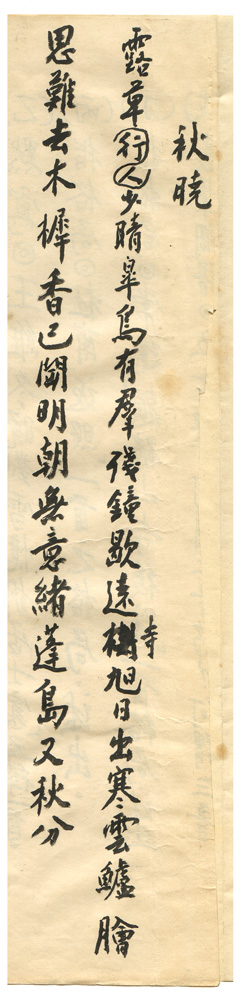 秋曉
露草行人少晴皐鳥有羣殘鐘歇遠樹寺旭日出寒雲鱸膾
思難去木樨香已闌明朝無意緒蓬島又秋分